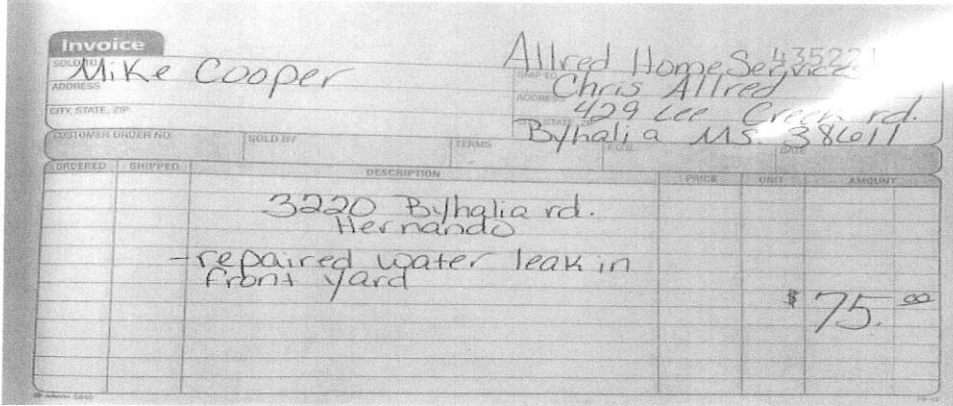 Invoice
435221
SOLD TO
Mike Cooper
Allred Home Services
SHIP TO
Chris Allred
ADDRESS
ADDRESS
429 Lee Creek rd.
CITY, STATE, ZIP
Byhalia MS. 38611
CUSTOMER ORDER NO.
SOLD BY
TERMS
F.O.B.
DATE
ORDERED SHIPPED DESCRIPTION PRICE UNIT AMOUNT
3220 Byhalia rd.
Hernando
- repaired water leak in
front yard
$ 75.00